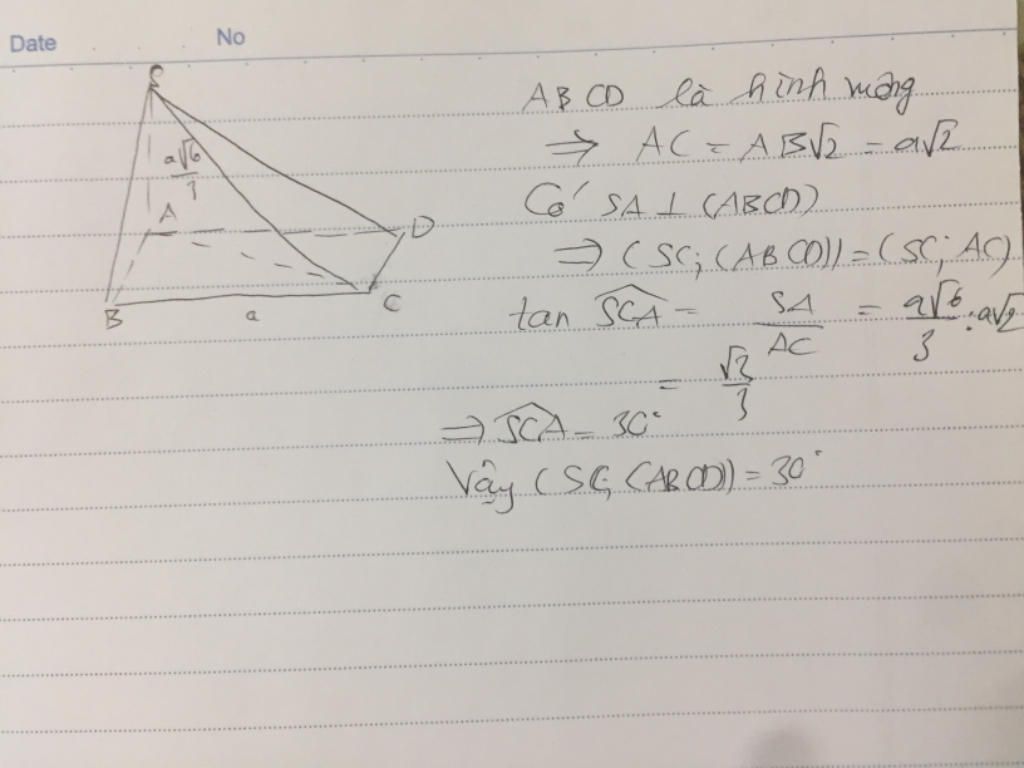 Date No
S
a√6/3
A
D
B
a
C
ABCD là hình vuông
⇒ AC = AB√2 = a√2
Có SA ⊥ (ABCD)
⇒ (SC; (ABCD)) = (SC; AC)
tan SCA = SA/AC = a√6/3 : a√2
= √3/3
⇒ SCA = 30°
Vậy (SC; (ABCD)) = 30°